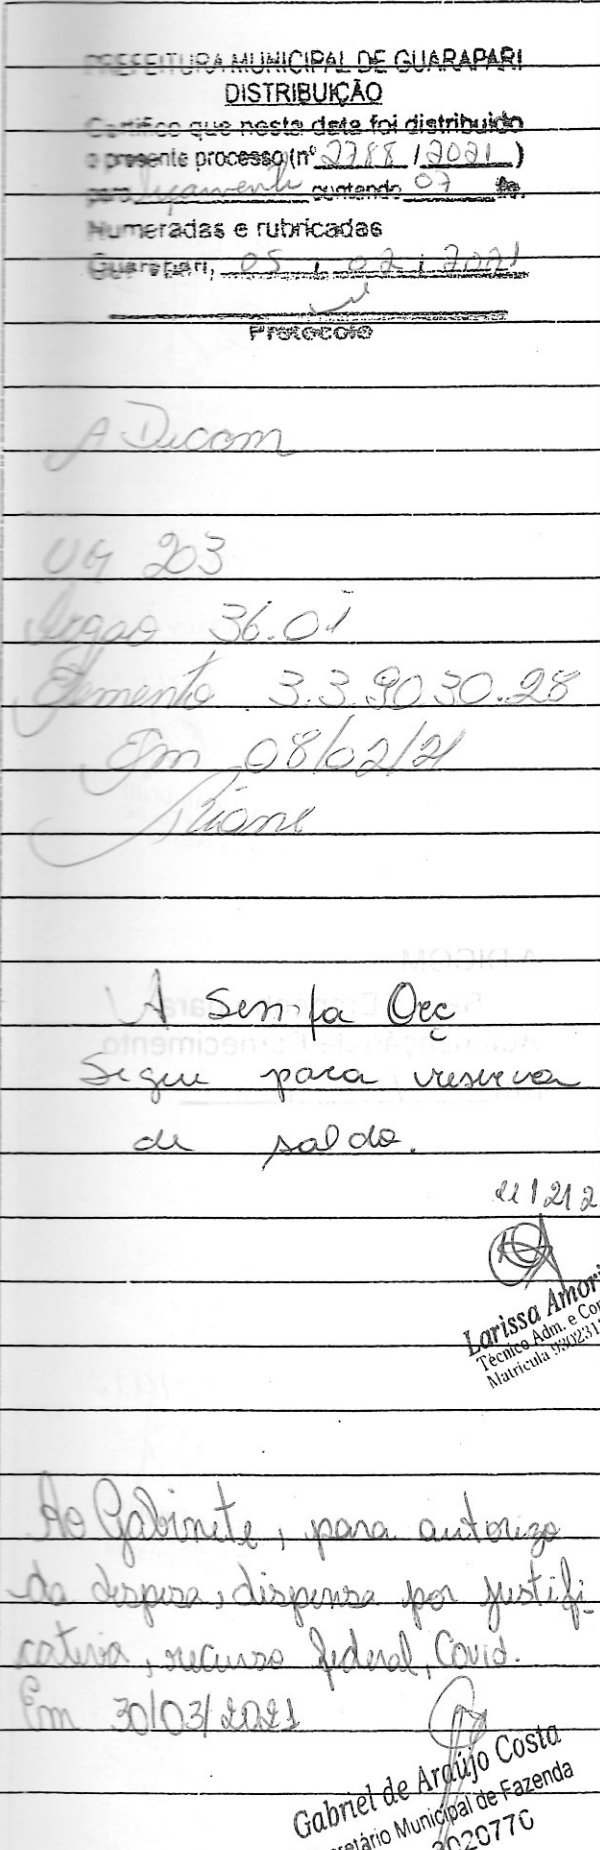 PREFEITURA MUNICIPAL DE GUARAPARI
DISTRIBUIÇÃO
Certifico que nesta data foi distribuido
o presente processo (nº 2788 / 2021 )
para contendo 07 fls.
Numeradas e rubricadas
Guarapari, 05 / 02 / 2021
Protocolo
A Dicom
UG 203
Orgao 36.01
Elemento 3.3.9030.28
Em 08/02/21
A Semfa Orç
Segue para reserva
de saldo.
Larissa Amori
Técnico Adm. e Con
Matricula
Ao Gabinete, para autorizo
da despesa, dispensa por justifi-
cativa, recurso federal, Covid.
Em 30/03/2021
Gabriel de Araújo Costa
retário Municipal de Fazenda